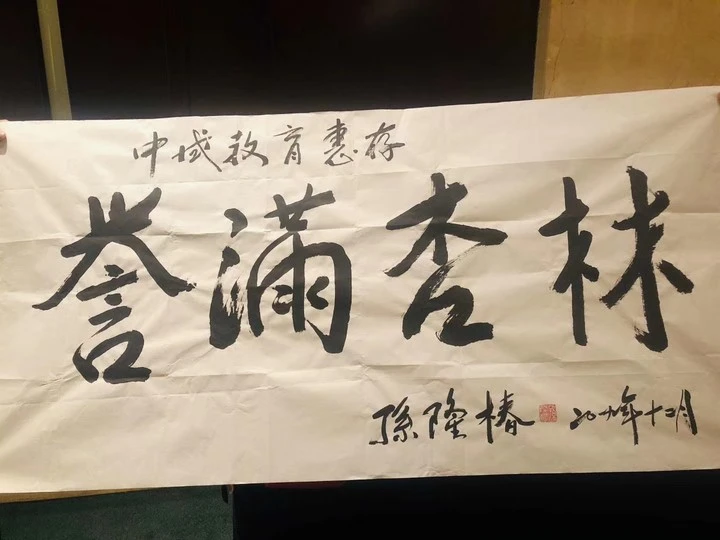 中域教育惠存
誉满杏林
孫隆椿 二〇一九年十二月